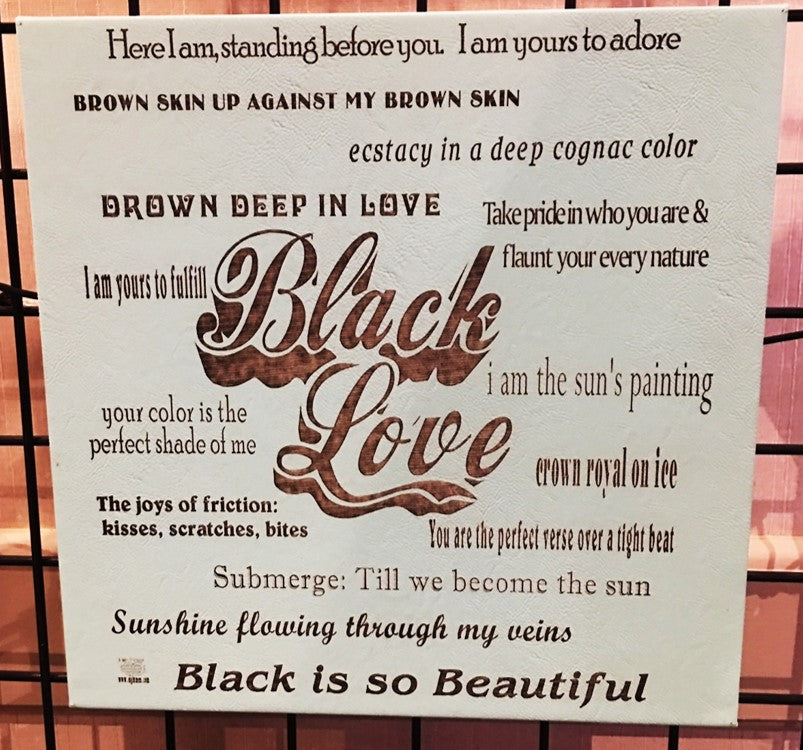 Here I am, standing before you. I am yours to adore
BROWN SKIN UP AGAINST MY BROWN SKIN
ecstacy in a deep cognac color
DROWN DEEP IN LOVE
Take pride in who you are &
flaunt your every nature
I am yours to fulfill
Black
Love
i am the sun's painting
your color is the
perfect shade of me
crown royal on ice
The joys of friction:
kisses, scratches, bites
You are the perfect verse over a tight beat
Submerge: Till we become the sun
Sunshine flowing through my veins
Black is so Beautiful